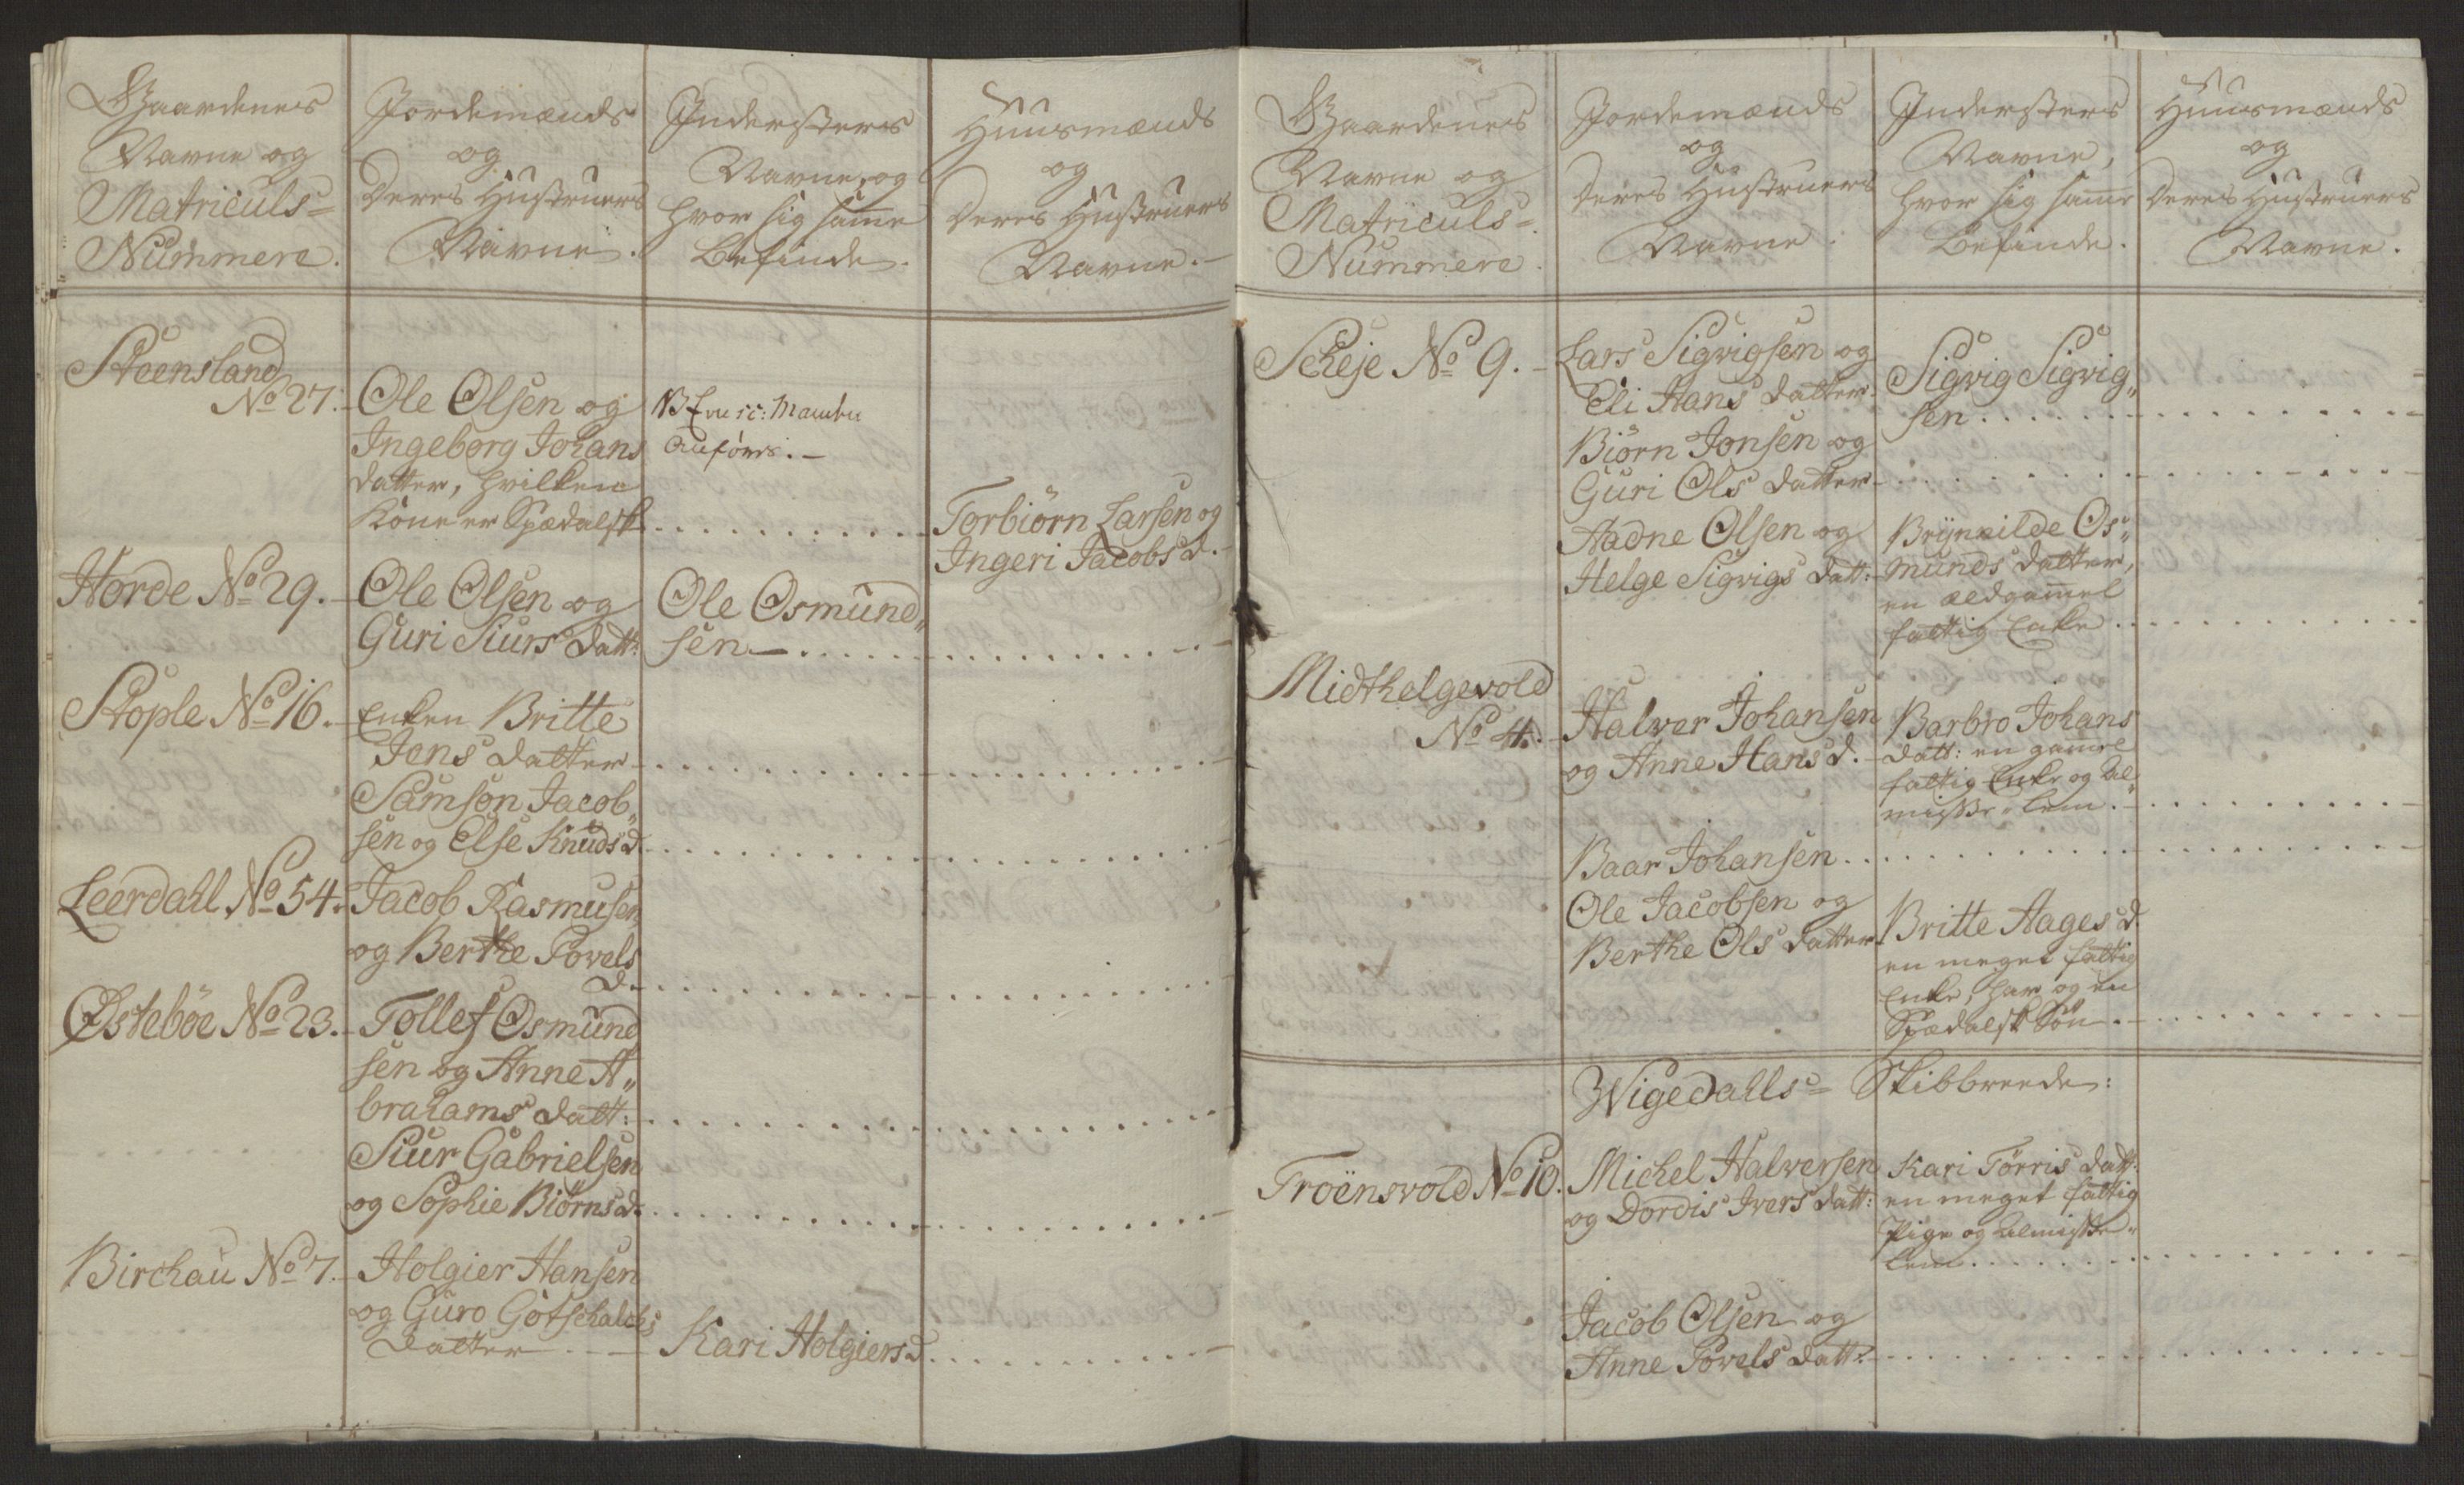 Gaardenes
Navne og
Matriculs=
Nummere.
Jordemænds
og
Deres Hustruers
Navne.
Indersters
Navne, og
hvor sig samme
Befinde.
Huusmænds
og
Deres Hustruers
Navne.
Steensland
No 27.
Ole Olsen og
Ingeborg Johans
datter, hvilken
Kone er Spedalsk
Torbiörn Larsen og
Ingeri Jacobs d.
Horde No 29.
Ole Olsen og
Guri Siurs datt:
Ole Osmund„
sen
Stople No 16.
Enken Britte
Jens datter
Samson Jacob„
sen og Else Knuds d.
Leerdahl No 54.
Jacob Rasmusen
og Berthe Povels
d.
Østeböe No 23.
Tollef Osmund
sen og Anne A„
brahams datt:
Siur Gabrielsen
og Sophie Biörns d.
Birchau No 7.
Holgier Hansen
og Guro Gotschalchs
datter
Kari Holgiers d.
Gaardenes
Navne og
Matriculs=
Nummere.
Jordemænds
og
Deres Hustruers
Navne.
Indersters
Navne,
hvor sig samme
Befinde.
Huusmænds
og
Deres Hustruers
Navne.
Scheje No 9.
Lars Sigvigsen og
Eli Hans datter
Sigvig Sigvig„
sen
Biörn Jonsen og
Guri Ols datter
Aadne Olsen og
Helge Sigvigs datt:
Brÿnhilde Os„
munds datter,
en ældgammel
fattig Enke
Midthelgevold
No 4.
Halver Johansen
og Anne Hans d.
Barbro Johans
datt: en gamel
fattig Enke og Al„
misse=lem.
Baar Johansen
Ole Jacobsen og
Berthe Ols datter
Britte Aages d.
en meget fattig
Enke, har og en
Spedalsk Sön.
Wigedahls= Skibbrede:
Troënsvold No 10.
Michel Halversen
og Dordis Ivers datt:
Kari Törris datt:
en meget fattig
Pige og Almisse„
lem
Jacob Olsen og
Anne Povels datt: